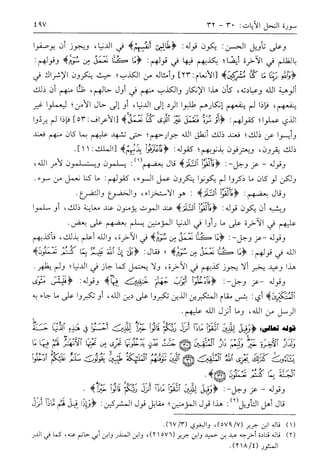 سورة النحل الآيات: ٣٠ - ٣٢ ٤٩٧
وعلى تأويل الحسن: يكون قوله: ﴿ظَالِمِىٓ أَنفُسِهِمْ﴾ في الدنيا، ويجوز أن يوصفوا
بالظلم في الآخرة أيضًا؛ بكذبهم فيها في قولهم: ﴿مَا كُنَّا نَعْمَلُ مِن سُوٓءٍ﴾ وقولهم:
﴿وَٱللَّهِ رَبِّنَا مَا كُنَّا مُشْرِكِينَ﴾ [الأنعام: ٢٣] وأمثاله من الكذب؛ حيث ينكرون الإشراك في
ألوهية الله وعبادته، كأن هذا الإنكار والكذب منهم في أول حالهم، ظنًّا منهم أن ذلك
ينفعهم، فإذا لم ينفعهم إنكارهم طلبوا الرد إلى الدنيا، أو إلى حال الأمن؛ ليعملوا غير
الذي عملوا؛ كقولهم: ﴿أَوْ نُرَدُّ فَنَعْمَلَ غَيْرَ ٱلَّذِى كُنَّا نَعْمَلُ﴾ [الأعراف: ٥٣] فإذا لم يردوا
وأيسوا عن ذلك؛ فعند ذلك أنطق الله جوارحهم؛ حتى تشهد عليهم بما كان منهم فعند
ذلك يقرون، ويعترفون بذنوبهم؛ كقوله: ﴿فَٱعْتَرَفُوا۟ بِذَنۢبِهِمْ﴾ [الملك: ١١].
وقوله - عز وجل -: ﴿فَأَلْقَوُا۟ ٱلسَّلَمَ﴾ قال بعضهم(١): يسلمون ويستسلمون لأمر الله،
ولكن لو كان ما ذكروا لم يكونوا ينكرون عمل السوء، كقولهم: ما كنا نعمل من سوء.
وقال بعضهم: ﴿فَأَلْقَوُا۟ ٱلسَّلَمَ﴾: هو الاستخزاء، والخضوع والتضرع.
ويشبه أن يكون قوله: ﴿فَأَلْقَوُا۟ ٱلسَّلَمَ﴾ عند الموت يؤمنون عند معاينة ذلك، أو سلموا
عليهم في الآخرة على ما رأوا في الدنيا المؤمنين يسلم بعضهم على بعض.
وقوله - عز وجل -: ﴿مَا كُنَّا نَعْمَلُ مِن سُوٓءٍ﴾ في الآخرة، والله أعلم بذلك، فأكذبهم
الله في قولهم: ﴿مَا كُنَّا نَعْمَلُ مِن سُوٓءٍ﴾؛ فقال: ﴿بَلَىٰٓ إِنَّ ٱللَّهَ عَلِيمٌۢ بِمَا كُنتُمْ تَعْمَلُونَ﴾
هذا وعيد يخبر ألا يجوز كذبهم في الآخرة، ولا يحتمل كما جاز في الدنيا؛ ولم يظهر.
وقوله - عز وجل -: ﴿فَٱدْخُلُوٓا۟ أَبْوَٰبَ جَهَنَّمَ خَٰلِدِينَ فِيهَا﴾ وقوله: ﴿فَلَبِئْسَ مَثْوَى
ٱلْمُتَكَبِّرِينَ﴾ أي: بئس مقام المتكبرين الذين تكبروا على دين الله، أو تكبروا على ما جاء به
الرسل من الله، وما أنزل الله عليهم.
قوله تعالى: ﴿وَقِيلَ لِلَّذِينَ ٱتَّقَوْا۟ مَاذَآ أَنزَلَ رَبُّكُمْ قَالُوا۟ خَيْرًا لِّلَّذِينَ أَحْسَنُوا۟ فِى هَٰذِهِ ٱلدُّنْيَا حَسَنَةٌ
وَلَدَارُ ٱلْءَاخِرَةِ خَيْرٌ وَلَنِعْمَ دَارُ ٱلْمُتَّقِينَ ﴿٣٠﴾ جَنَّٰتُ عَدْنٍ يَدْخُلُونَهَا تَجْرِى مِن تَحْتِهَا ٱلْأَنْهَٰرُ لَهُمْ فِيهَا مَا
يَشَآءُونَ كَذَٰلِكَ يَجْزِى ٱللَّهُ ٱلْمُتَّقِينَ ﴿٣١﴾ ٱلَّذِينَ تَتَوَفَّىٰهُمُ ٱلْمَلَٰٓئِكَةُ طَيِّبِينَ يَقُولُونَ سَلَٰمٌ عَلَيْكُمُ ٱدْخُلُوا۟
ٱلْجَنَّةَ بِمَا كُنتُمْ تَعْمَلُونَ ﴿٣٢﴾﴾.
وقوله - عز وجل -: ﴿وَقِيلَ لِلَّذِينَ ٱتَّقَوْا۟ مَاذَآ أَنزَلَ رَبُّكُمْ قَالُوا۟ خَيْرًا﴾.
قال أهل التأويل(٢): هذا قول المؤمنين؛ مقابل قول المشركين: ﴿وَإِذَا قِيلَ لَهُم مَّاذَآ أَنزَلَ
(١) قاله ابن جرير (٥٧٩/٧)، والبغوي (٦٧/٣).
(٢) قاله قتادة أخرجه عبد بن حميد وابن جرير (٢١٥٧٦)، وابن المنذر وابن أبي حاتم عنه، كما في الدر
المنثور (٢١٨/٤).